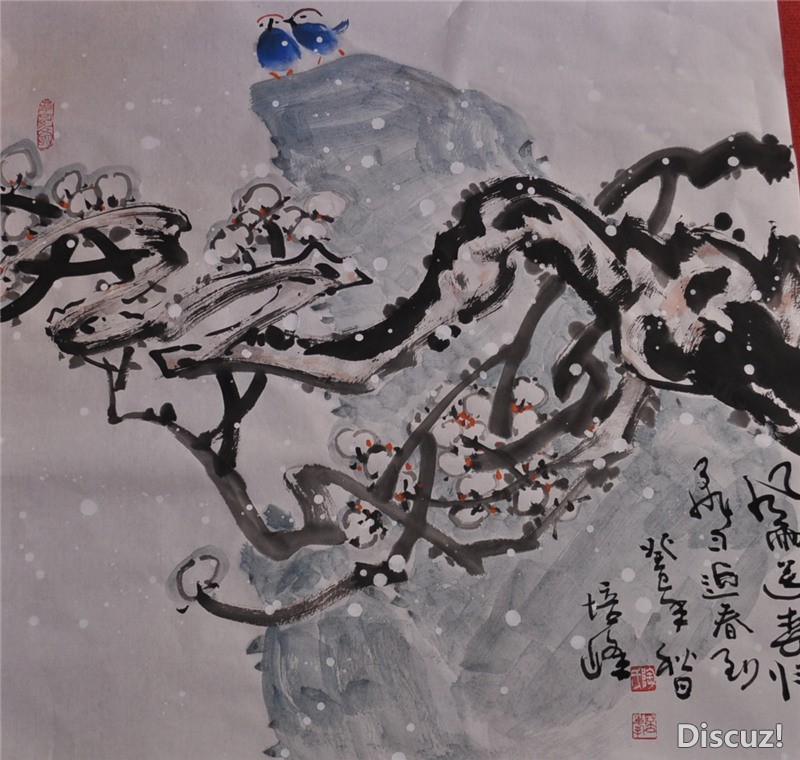 风雨送春归
飞雪迎春到
癸巳年秋日
培峰
Discuz!